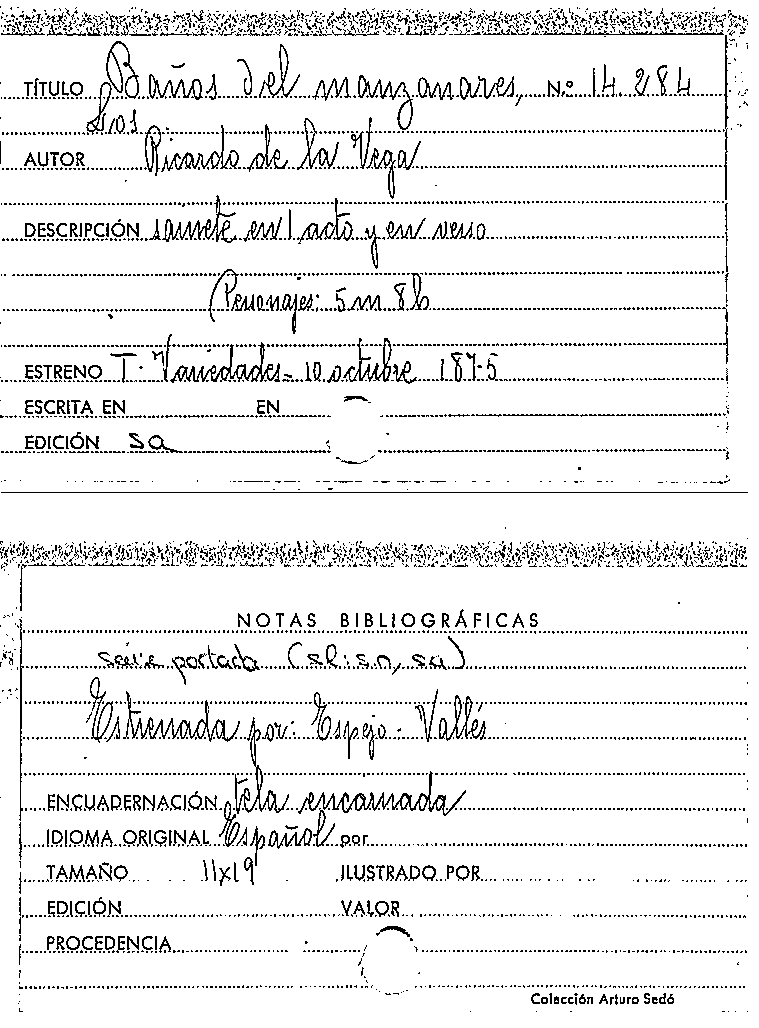 TÍTULO Baños del manzanares, N.º 14.284
Los
AUTOR Ricardo de la Vega
DESCRIPCIÓN sainete en 1 acto y en verso
(Personajes: 5 m 8 h
ESTRENO T. Variedades - 10 octubre 1875
ESCRITA EN EN
EDICIÓN sa
NOTAS BIBLIOGRÁFICAS
portada (sl: s.n, sa)
Estrenada por: Espejo - Vallés
ENCUADERNACIÓN tela encarnada
IDIOMA ORIGINAL Español por
TAMAÑO 11x19 ILUSTRADO POR
EDICIÓN VALOR
PROCEDENCIA
Colección Arturo Sedó